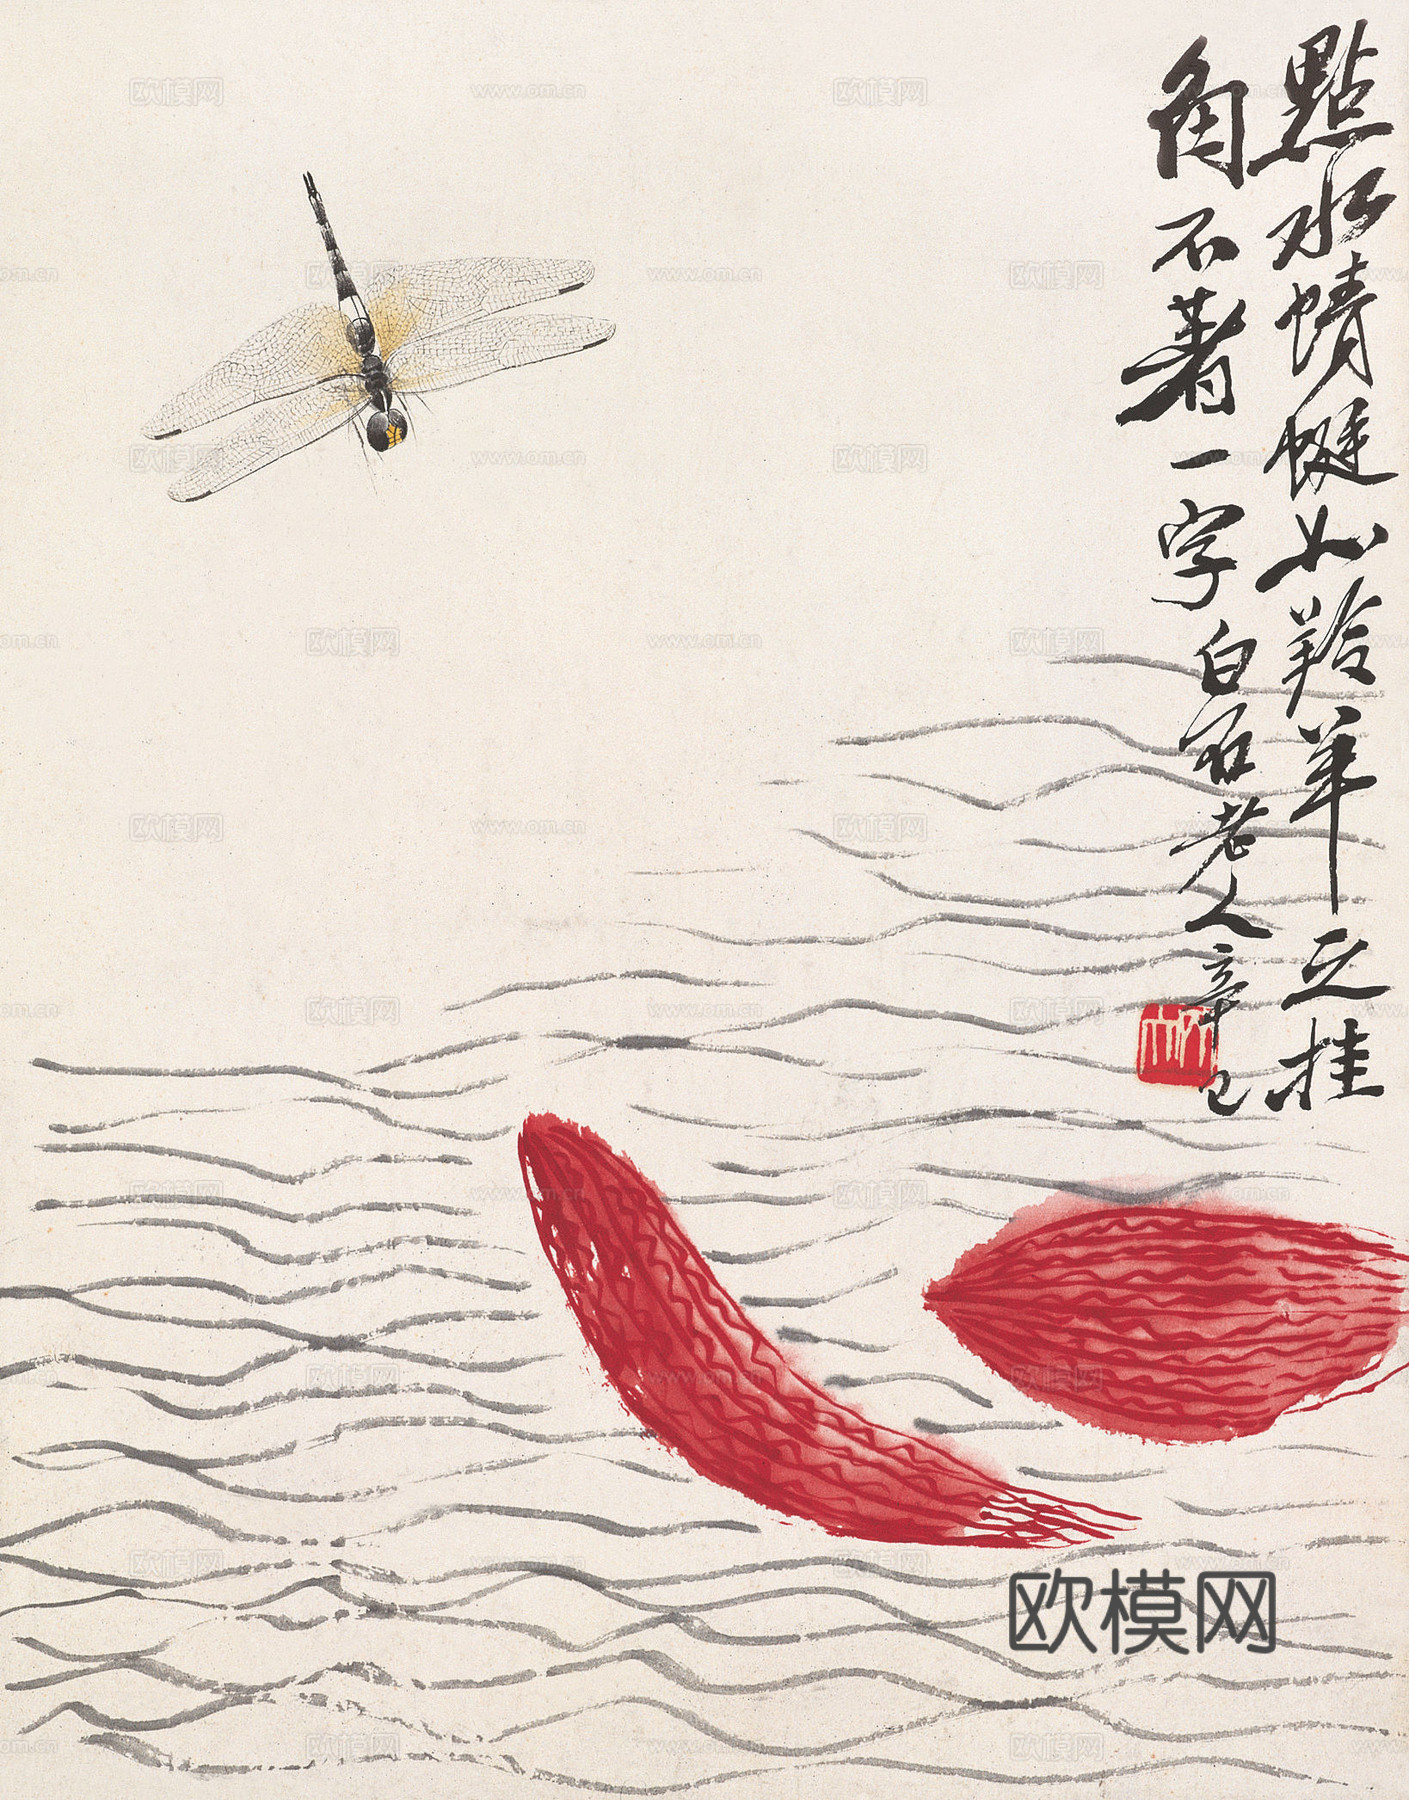 點水蜻蜓如羚羊之挂
角不著一字白石老人辛巳
欧模网
www.om.cn